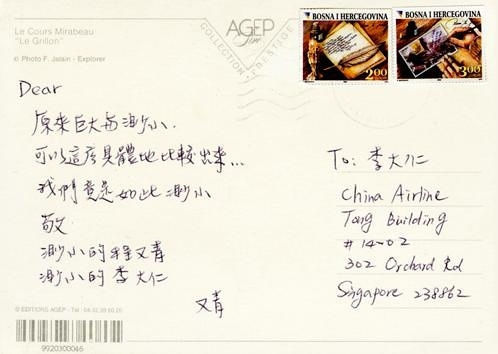 Le Cours Mirabeau
"Le Grillon"
© Photo F. Jalain - Explorer
AGEP
COLLECTION PRESTIGE
BOSNA I HERCEGOVINA
2.00
BOSNA I HERCEGOVINA
3.00
Dear
原來巨大與渺小.
可以這麼具體地比較出來...
我們竟是如此渺小
敬
渺小的程又青
渺小的李大仁
又青
To: 李大仁
China Airline
Tong Building
#14-02
302 Orchard Rd
Singapore 238862
© EDITIONS AGEP - Tél : 04.92.09.60.20
9920300046